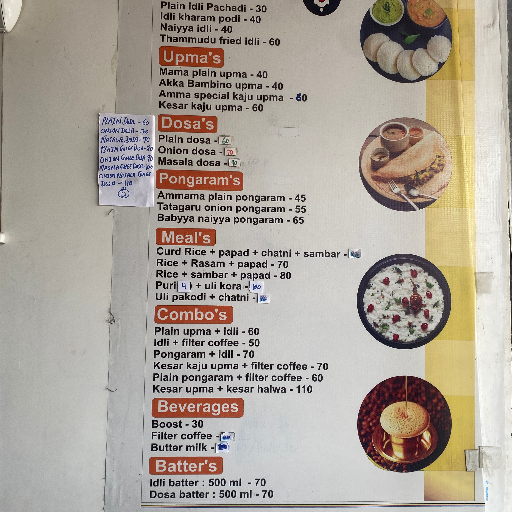 Plain Idli Pachadi - 30
Idli kharam podi - 40
Naiyya idli - 40
Thammudu fried idli - 60
Upma's
Mama plain upma - 40
Akka Bambino upma - 40
Amma special kaju upma - 60
Kesar kaju upma - 60
Dosa's
Plain dosa -
Onion dosa - 70
Masala dosa -
Pongaram's
Ammama plain pongaram - 45
Tatagaru onion pongaram - 55
Babyya naiyya pongaram - 65
Meal's
Curd Rice + papad + chatni + sambar -
Rice + Rasam + papad - 70
Rice + sambar + papad - 80
Puri 4 + uli kora -
Uli pakodi + chatni -
Combo's
Plain upma + Idli - 60
Idli + filter coffee - 50
Pongaram + Idli - 70
Kesar kaju upma + filter coffee - 70
Plain pongaram + filter coffee - 60
Kesar upma + kesar halwa - 110
Beverages
Boost - 30
Filter coffee -
Butter milk -
Batter's
Idli batter : 500 ml - 70
Dosa batter : 500 ml - 70
PLAIN DOSA
ONION DOSA - 70